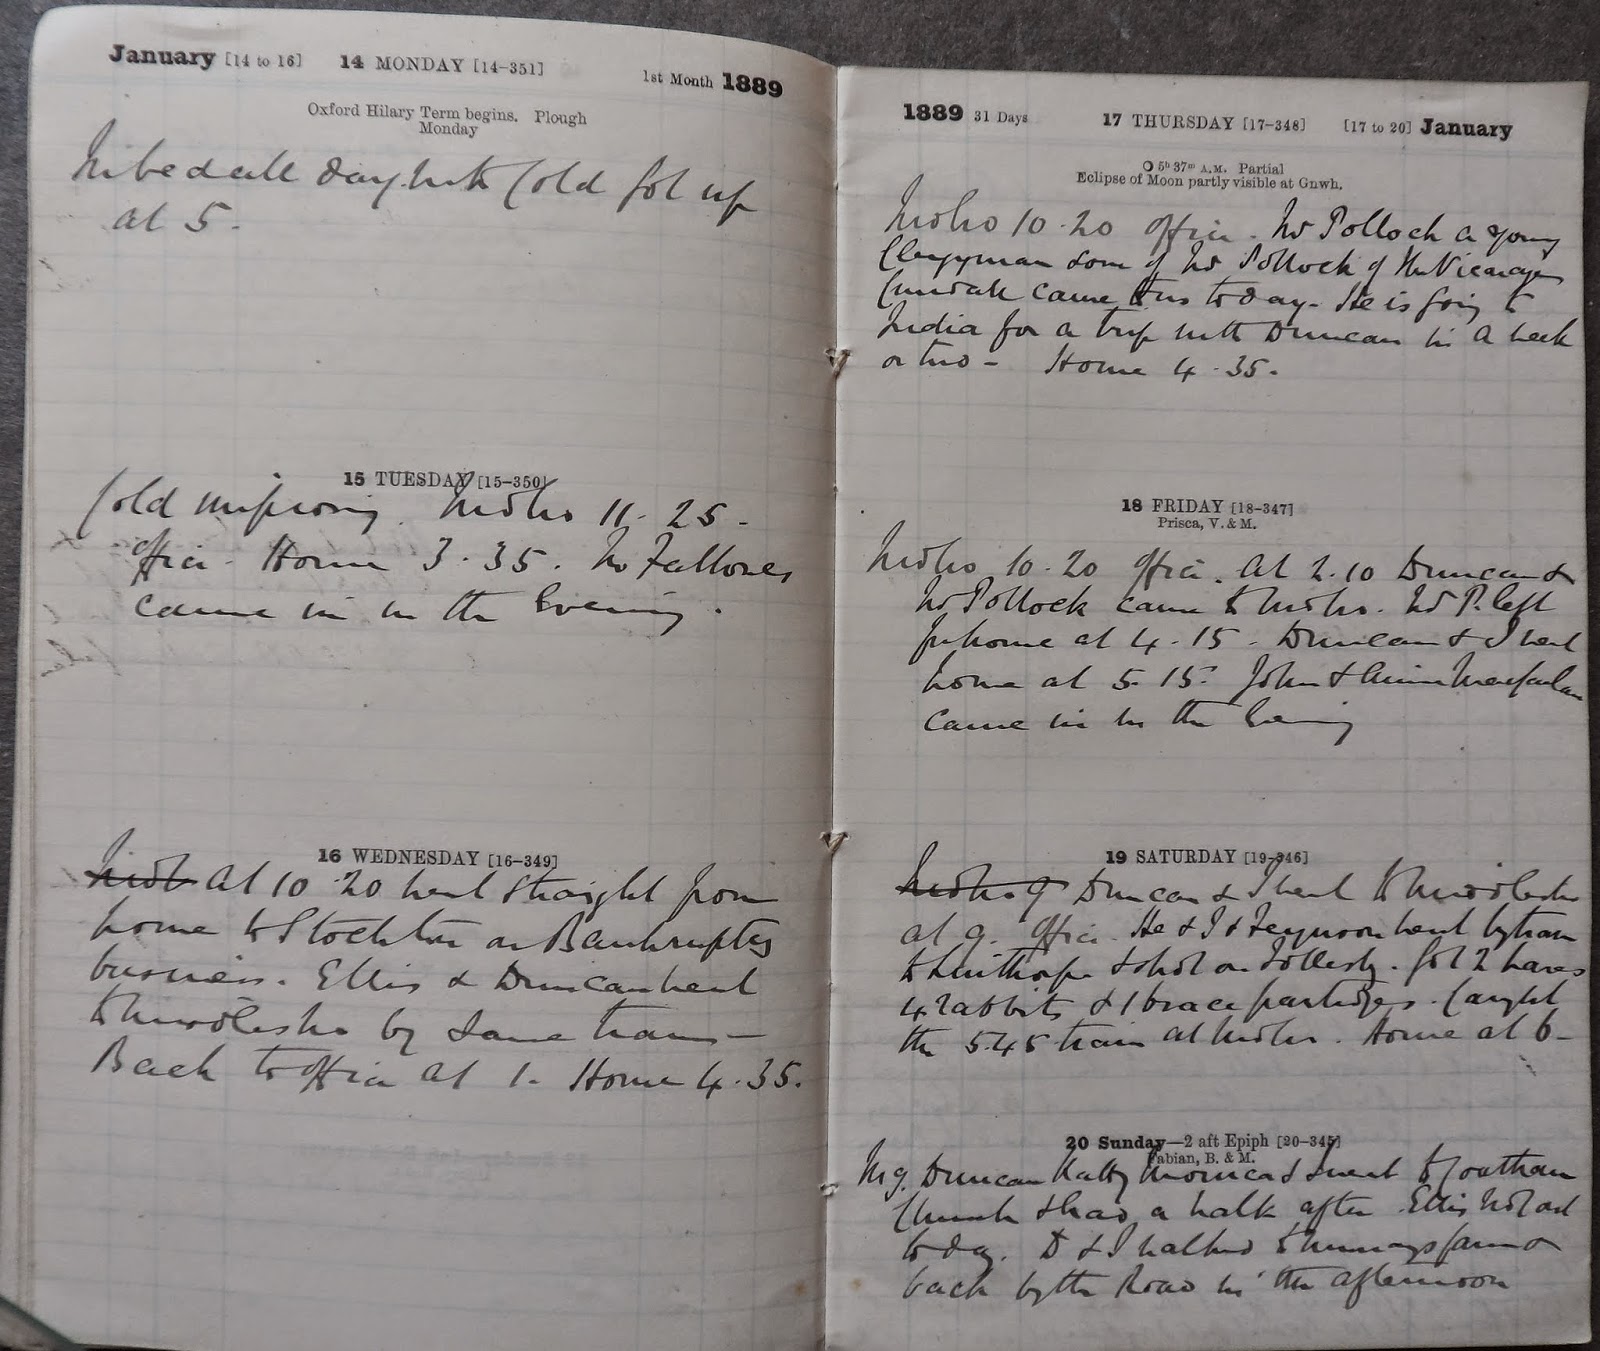 January [14 to 16] 14 MONDAY [14–351] 1st Month 1889
Oxford Hilary Term begins. Plough
Monday
In bed all day with Cold got up
at 5.
15 TUESDAY [15–350]
Cold improving. Midbro 11.25.
office. Home 3.35. Mr Fallows
came in in the Evening.
16 WEDNESDAY [16–349]
Midb At 10.20 went straight from
home to Stockton on Bankruptcy
business. Ellis & Duncan went
to Middlesbro by same train –
Back to office at 1. Home 4.35.
1889 31 Days 17 THURSDAY [17–348] [17 to 20] January
5h 37m A.M. Partial
Eclipse of Moon partly visible at Gnwh.
Midbro 10.20 office. Mr Pollock a young
Clergyman son of Mr Pollock of the Vicarage
came to us today. He is going to
India for a trip with Duncan in a week
or two – Home 4.35.
18 FRIDAY [18–347]
Prisca, V. & M.
Midbro 10.20 office. At 2.10 Duncan &
Mr Pollock came to Midbro. Mr P. left
for home at 4.15. Duncan & I went
home at 5.15. John & Macfarlan
came in in the Evening
19 SATURDAY [19–346]
Midbro 9 Duncan & I went to Middlesbro
at 9. Office. He & I & Ferguson went by tram
to Linthorpe & shot on Tollesby. Got 2 hares
4 rabbits & 1 brace partridges. Caught
the 5.45 train at Midbro. Home at 6 –
20 Sunday—2 aft Epiph [20–345]
Fabian, B. & M.
Mg. Duncan Katty Monica & I went to Coatham
Church & had a walk after. Ellis not out
today. D & I walked to farm &
back by the Road in the afternoon